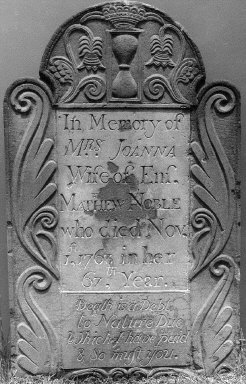 In Memory of
MRS JOANNA
Wife of Enſ.
MATHEW NOBLE
who died Nov.
in her
67th Year.
Death is a Debt
to Nature Due
Which I have paid
& So must you.